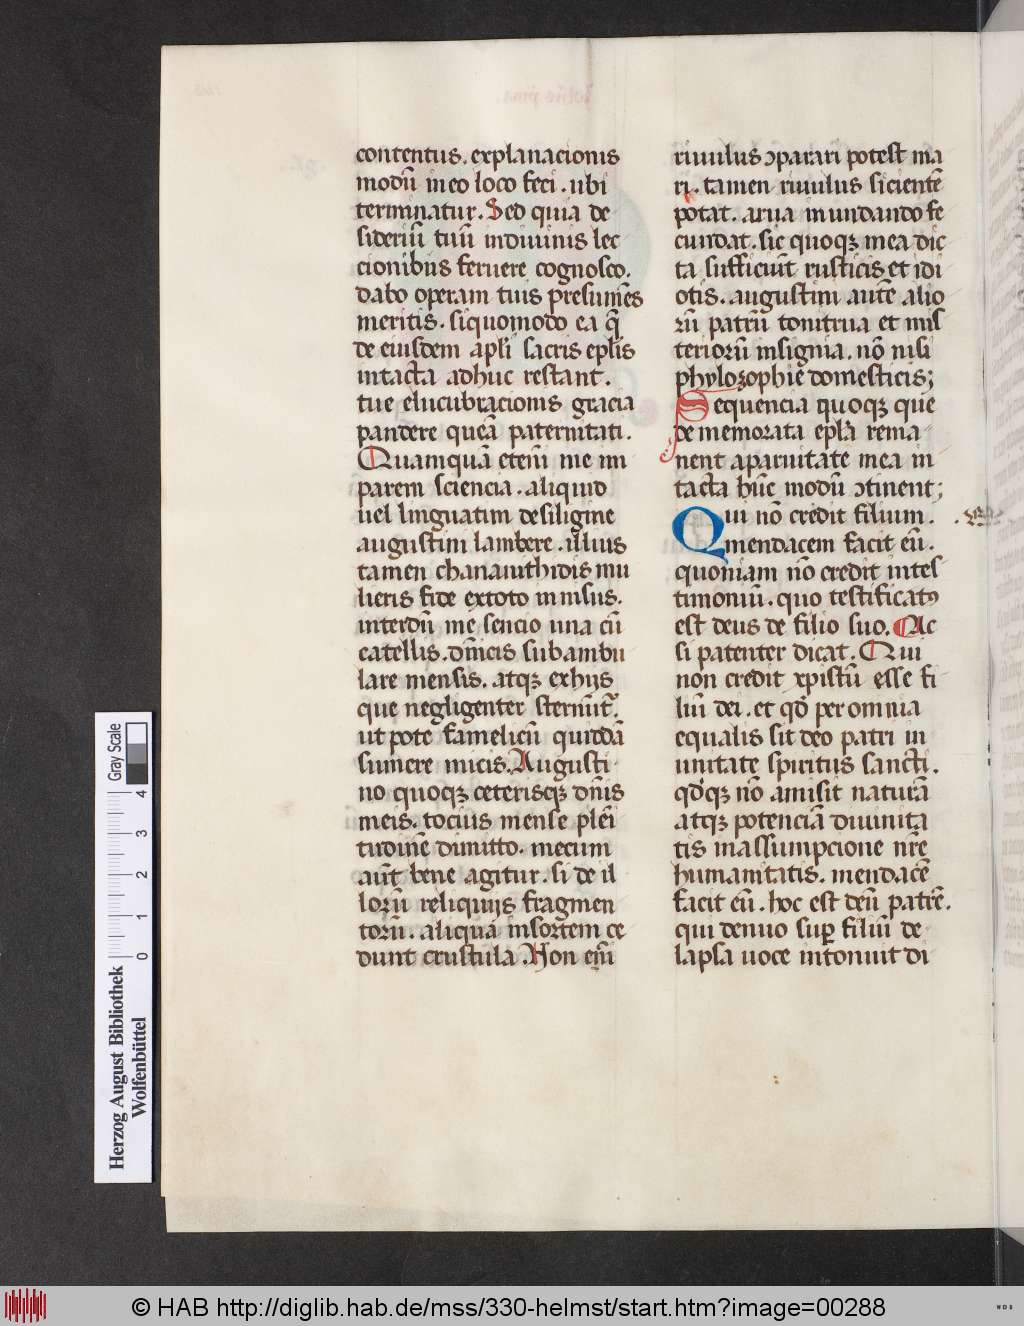 contentus. explanacionis
modū in eo loco feci. ubi
terminatur. Sed quia de
sideriū tuū indiuinis lec
cionibus feruere cognosco.
dabo operam tuis presumēs
meritis. siquomodo ea q̄
de eiusdem apl̄i sacris epl̄is
intacta adhuc restant.
tue elucubracionis gracia
pandere queā paternitati.
Quamquā etem̄ me im
parem sciencia. aliquid
uel linguatim de siligine
augustini lambere. illius
tamen chananithidis mu
lieris fide extoto innisus.
interdū me sencio una cū
catellis. dn̄icis subambu
lare mensis. atqꝫ exhijs
que negligenter sternūt᷑.
ut pote famelicū quiddā
sumere micis. Augusti
no quoqꝫ ceterisqꝫ dn̄is
meis. tocius mense plēi
tudinē dimitto. mecum
aūt bene agitur. si de il
lorū reliquijs fragmen
torū. aliqua insortem ce
dunt crustula. Non em̄
riuulus ɔparari potest ma
ri. tamen riuulus sicientē
potat. arua inundando fe
cundat. sic quoqꝫ mea dic
ta sufficiūt rusticis et idi
otis. augustini autē alio
rū patrū tonitrua et mis
teriorū insignia. nō nisi
phylozophie domesticis;
Sequencia quoqꝫ que
de memorata epl̄a rema
nent aparuitate mea in
tacta hūc modū ɔtinent;
Qui nō credit filium.
mendacem facit eū.
quoniam nō credit intes
timoniū. quo testificatꝰ
est deus de filio suo. Ac
si patenter dicat. Qui
non credit xpistū esse fi
liū dei. et qd̄ per omnia
equalis sit deo patri in
unitate spiritus sancti.
qd̄qꝫ nō amisit naturā
atqꝫ potenciā diuinita
tis inassumpcione nr̄e
humanitatis. mendacē
facit eū. hoc est deū patrē.
qui denuo suꝑ filiū de
lapsa uoce intonuit di
Gray Scale
0 1 2 3 4
Herzog August Bibliothek
Wolfenbüttel
© HAB http://diglib.hab.de/mss/330-helmst/start.htm?image=00288